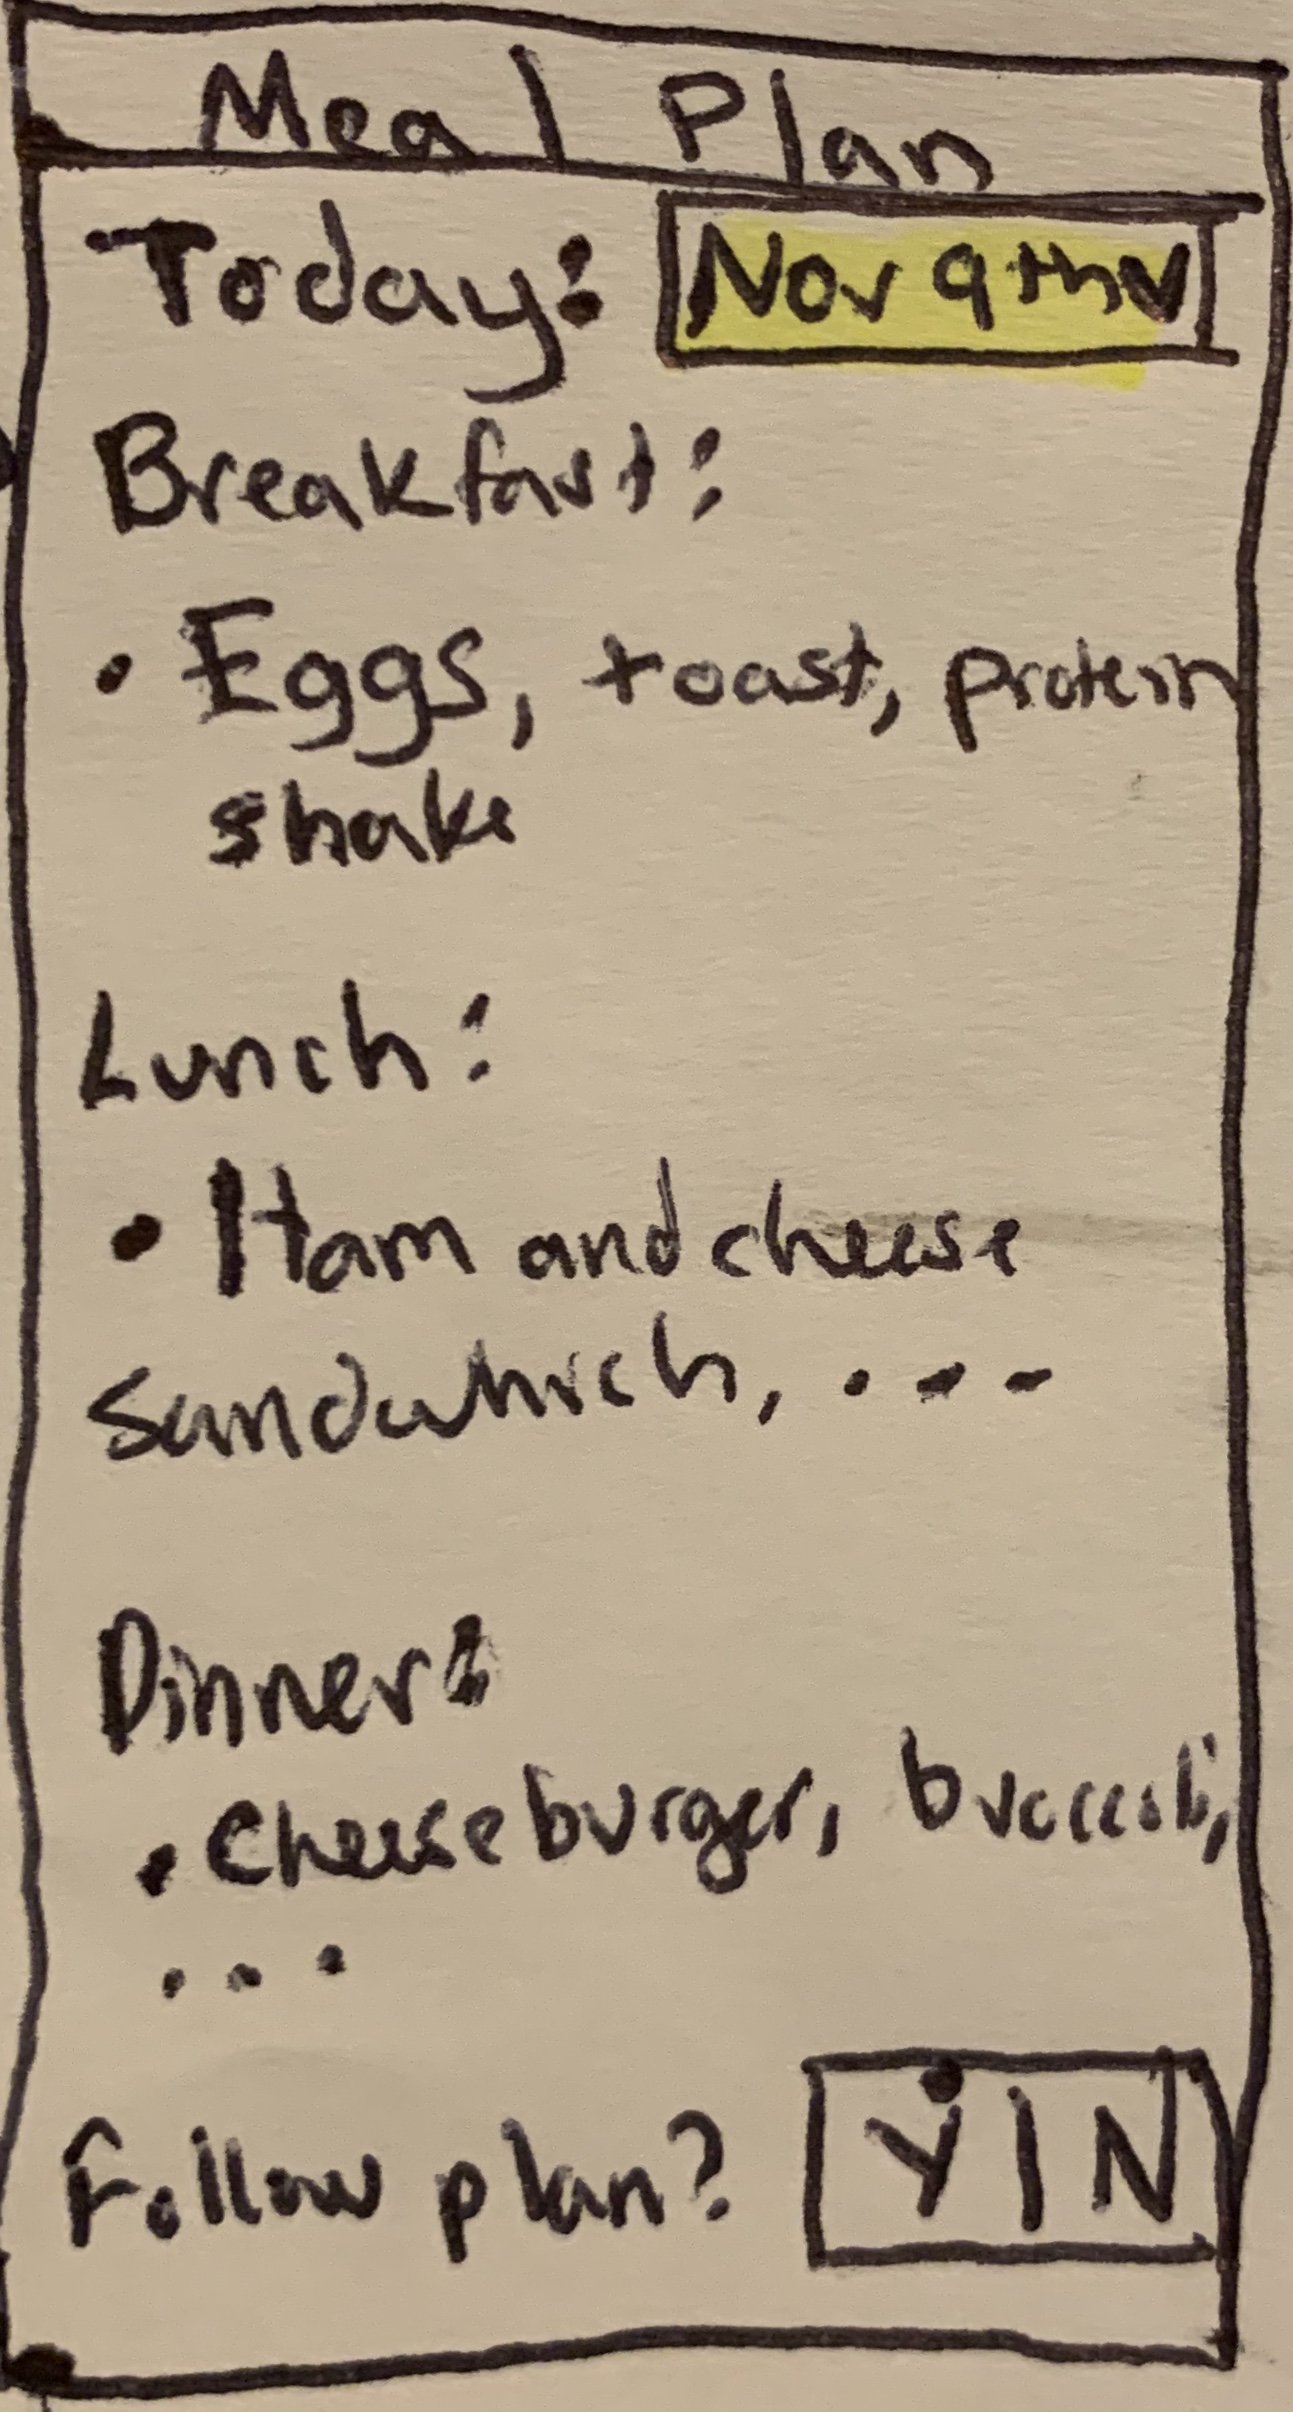 Meal Plan
Today: Nov 9th v
Breakfast:
• Eggs, toast, protein
shake
Lunch:
• Ham and cheese
Sandwhich, ...
Dinner:
• Cheeseburger, broccoli,
...
Follow plan? Y|N